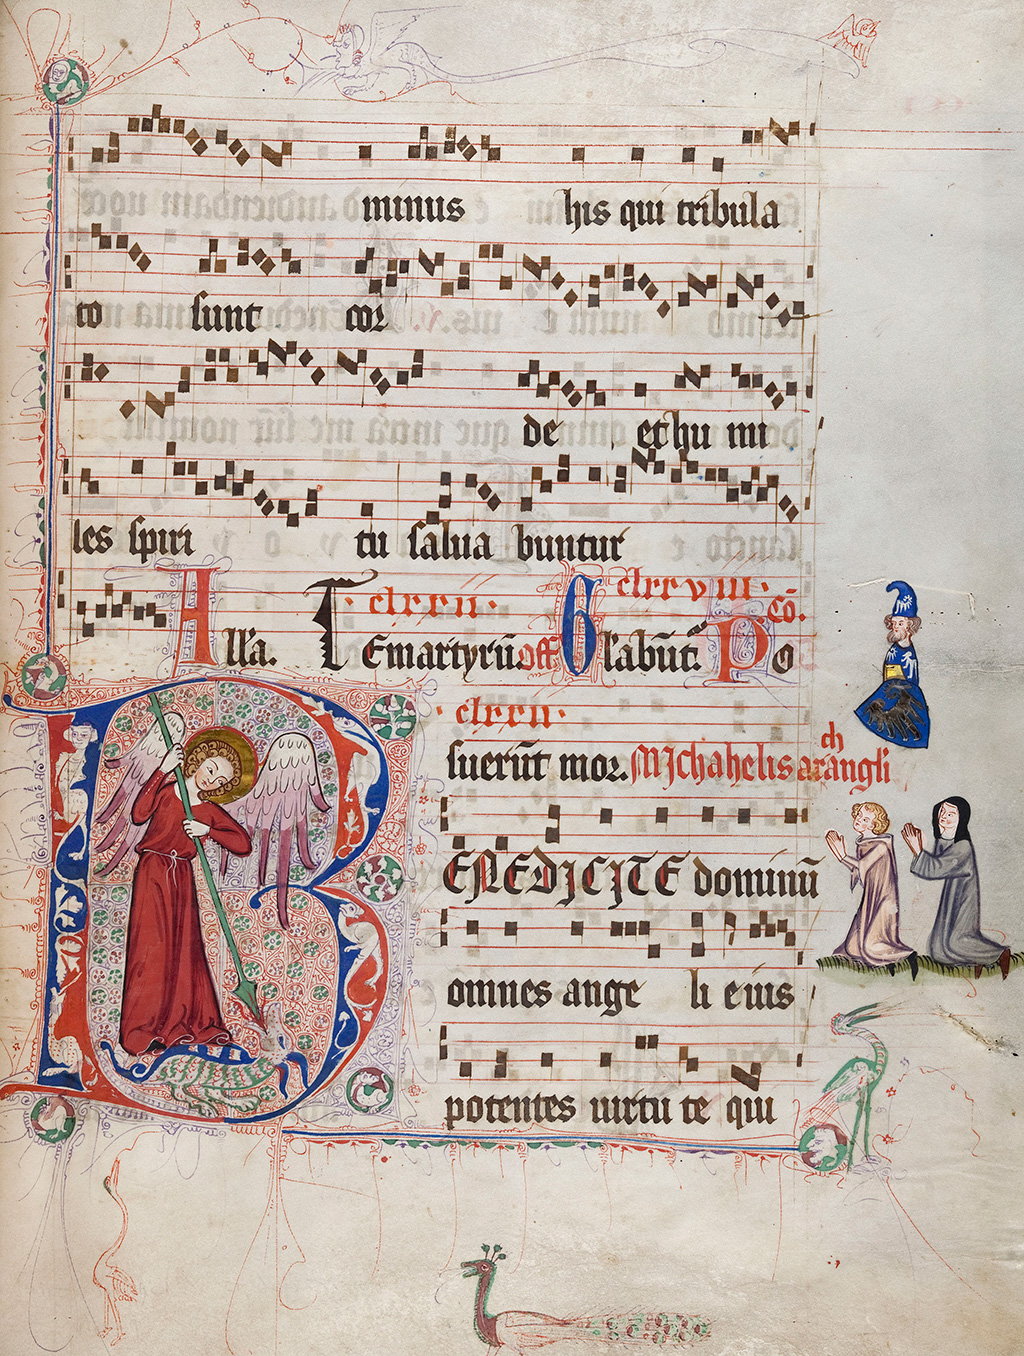 minus his qui tribula
to sunt cor
de et hu mi
les spiri tu salua buntur
clxxii. clxxviii. Co.
Alla. Te martyrū. off Glabūt. Po
clxxii.
fuerūt mor. Michahelis archangli
BENEDICITE dominū
omnes ange li eius
potentes uirtu te qui